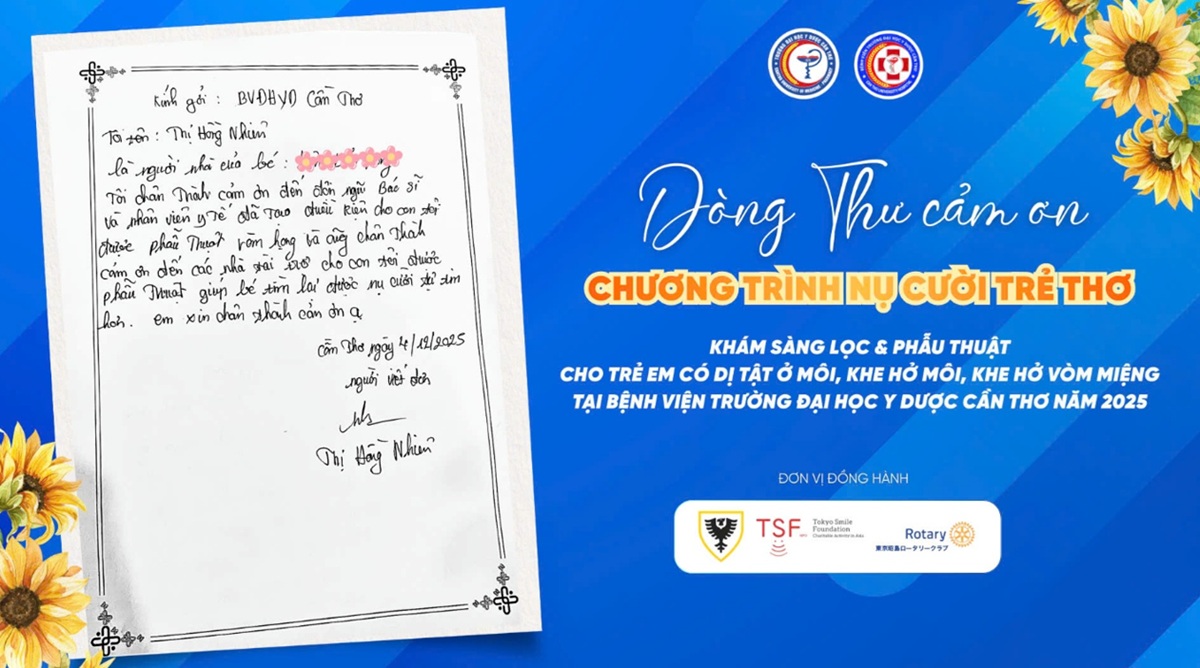 Kính gởi : BVĐHYD Cần Thơ
Tôi tên : Thị Hồng Nhiên
là người nhà của bé :
Tôi chân Thành cảm ơn đến đội ngũ Bác sĩ
và nhân viên y tế đã Tạo điều kiện cho con tôi
được phẫu Thuật vòm họng và cũng chân Thành
cám ơn đến các nhà tài trợ cho con tôi được
phẫu Thuật giúp bé tìm lại được nụ cười tự tin
hơn. em xin chân thành cảm ơn ạ
Cần Thơ ngày 4/12/2025
người viết đơn
Thị Hồng Nhiên
Dòng Thư cảm ơn
CHƯƠNG TRÌNH NỤ CƯỜI TRẺ THƠ
KHÁM SÀNG LỌC & PHẪU THUẬT
CHO TRẺ EM CÓ DỊ TẬT Ở MÔI, KHE HỞ MÔI, KHE HỞ VÒM MIỆNG
TẠI BỆNH VIỆN TRƯỜNG ĐẠI HỌC Y DƯỢC CẦN THƠ NĂM 2025
ĐƠN VỊ ĐỒNG HÀNH
TSF
Tokyo Smile
Foundation
Rotary
東京昭島ロータリークラブ